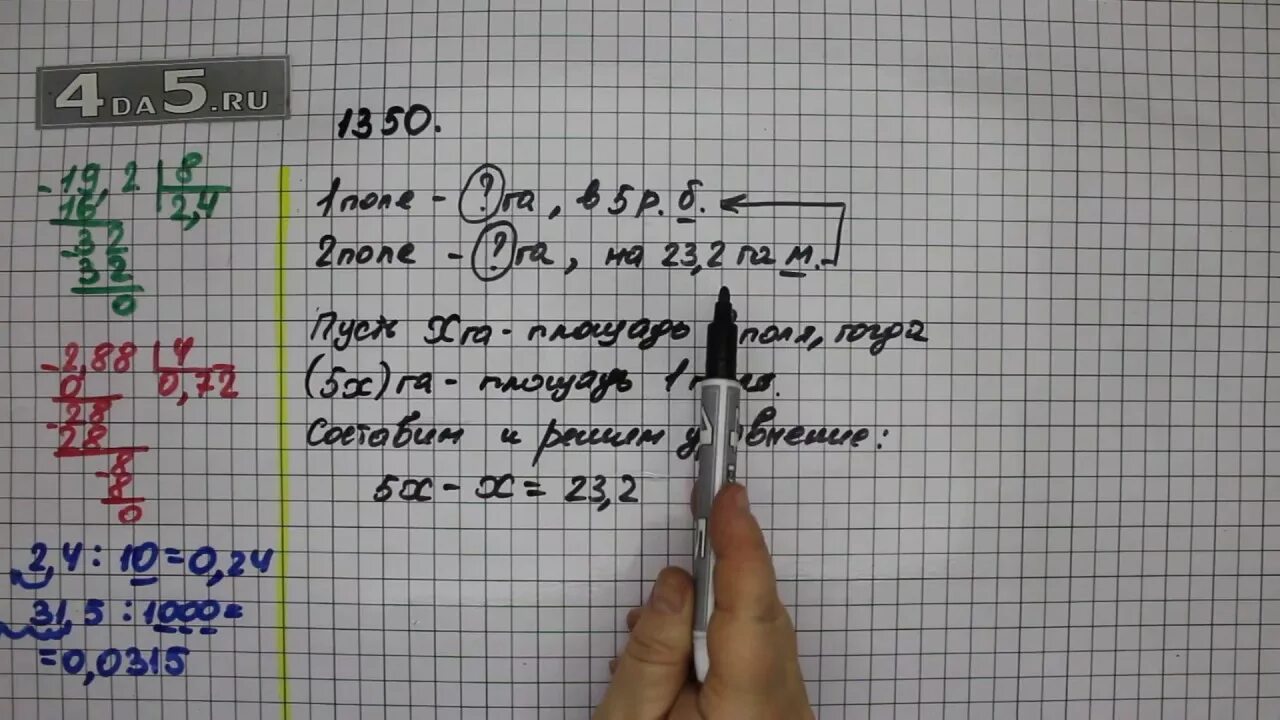 4DA5.RU
1350.
1 поле - ? га, в 5 р. б.
2 поле - ? га, на 23,2 га м.
Пусть x га - площадь поля, тогда
(5x) га - площадь 1
Составим и решим уравнение:
5x - x = 23,2
-19,2 | 8
16 2,4
-32
32
0
-2,88 | 4
0 0,72
-28
28
-8
8
0
2,4 : 10 = 0,24
31,5 : 1000 =
= 0,0315